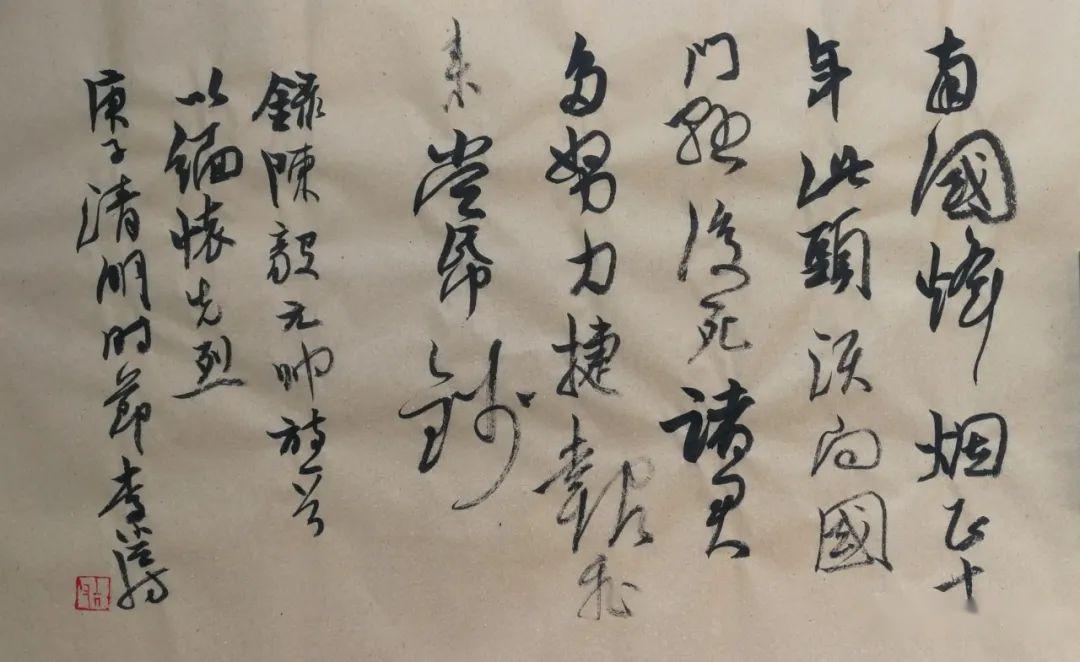 南國烽烟正十
年此頭須向國
門懸後死諸君
多努力捷報飛
来當帋錢
錄陳毅元帥詩一首
以緬懷先烈
庚子清明时節李